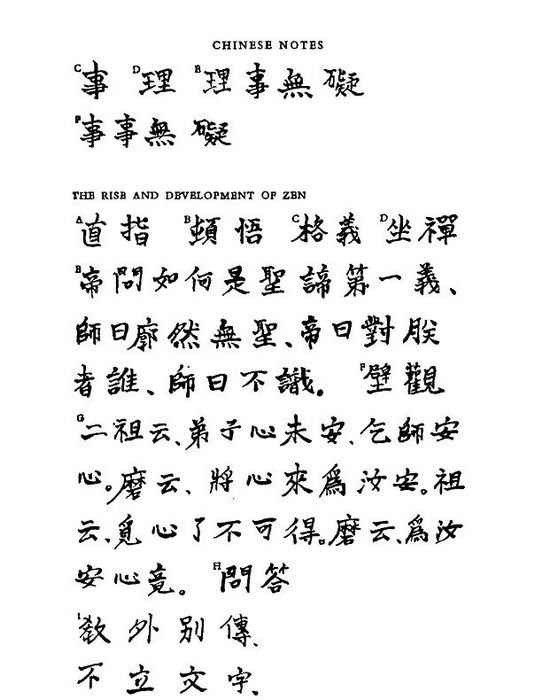 CHINESE NOTES
C事 D理 E理事無礙
F事事無礙
THE RISE AND DEVELOPMENT OF ZEN
A道指 B頓悟 C格義 D坐禪
E帝問如何是聖諦第一義、
師曰廓然無聖、帝曰對朕
者誰、師曰不識。 F壁觀
G二祖云、弟子心未安、乞師安
心。磨云、將心來爲汝安。祖
云、覓心了不可得。磨云、爲汝
安心竟。 H問答
I敎外別傳、
不立文字、